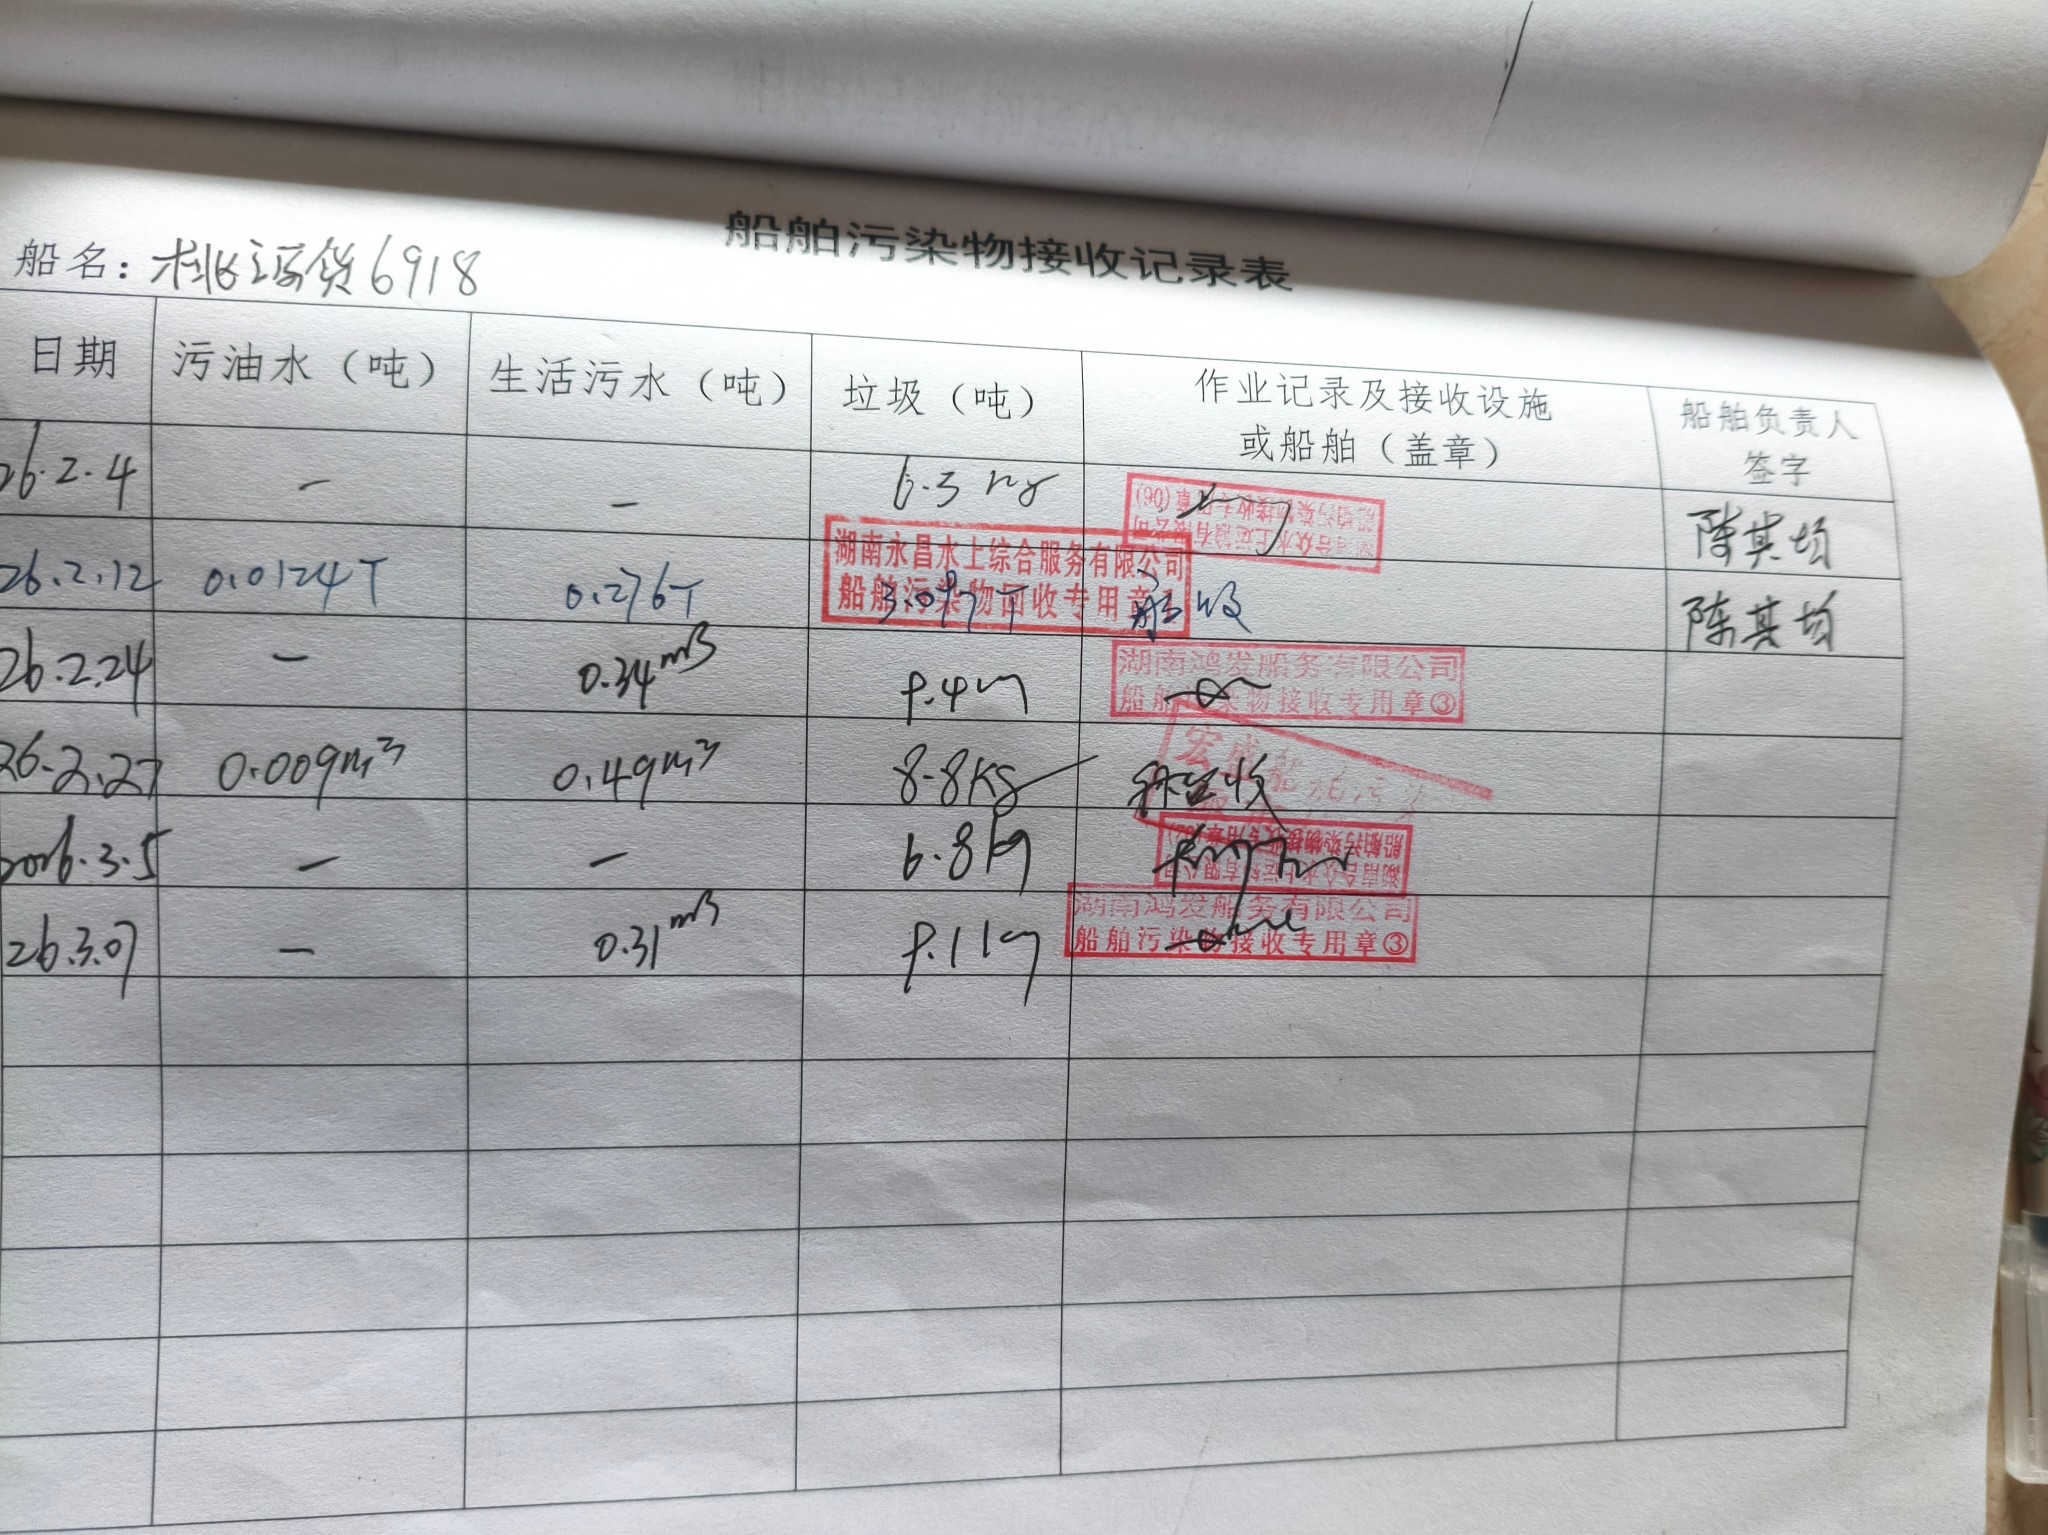 船舶污染物接收记录表
船名：桃源货6918
日期 污油水（吨） 生活污水（吨） 垃圾（吨） 作业记录及接收设施或船舶（盖章） 船舶负责人签字
26.2.4 — — 6.3 kg 陈其均
船舶污染物接收专用章(06)
26.2.12 0.0124T 0.276T 陈其均
湖南永昌水上综合服务有限公司
船舶污染物回收专用章
26.2.24 — 0.34m3 9.4kg
湖南鸿发船务有限公司
船舶污染物接收专用章③
26.2.27 0.009m3 0.49m3 8.8KG
2026.3.5 — — 6.8kg
26.3.07 — 0.31m3 9.1kg
湖南鸿发船务有限公司
船舶污染物接收专用章③